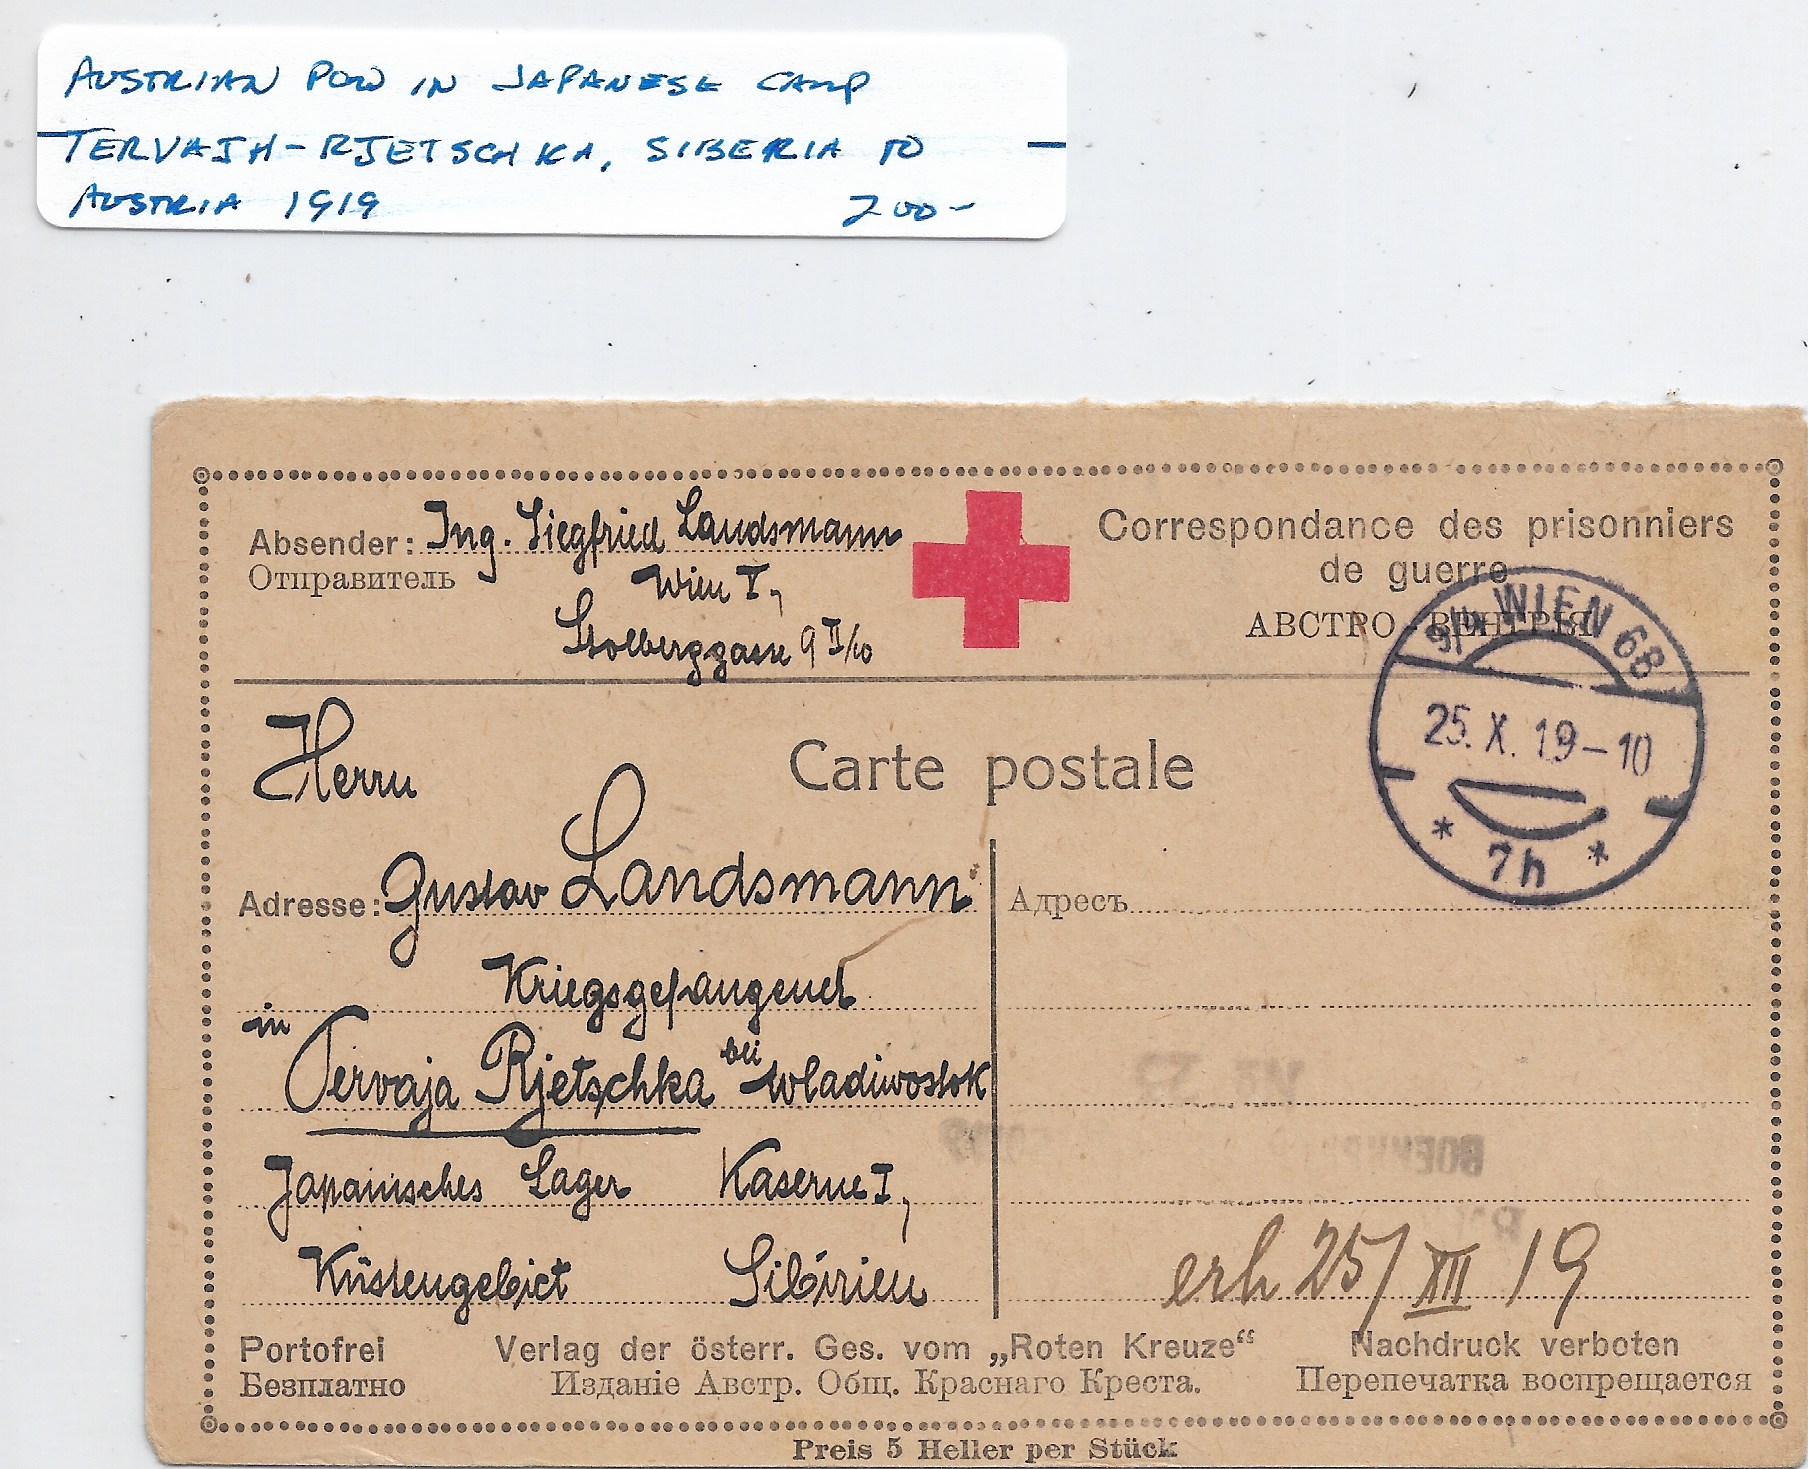 AUSTRIAN POW IN JAPANESE CAMP
TERVAJH-RJETSCHKA, SIBERIA TO
AUSTRIA 1919 200-
Absender: Ing. Siegfried Landsmann
Отправитель
Wien V,
Stolberggasse 9 II/10
Correspondance des prisonniers
de guerre
АВСТРО-ВЕНГРІЯ
9/4 WIEN 68
25. X. 19-10
* 7h *
Herrn
Carte postale
Adresse: Gustav Landsmann
Адресъ
Kriegsgefangener
in Pervaja Rjetschka bei Wladiwostok
Japanisches Lager Kaserne I,
Küstengebiet Sibirien
erh 25/XII 19
Portofrei
Безплатно
Verlag der österr. Ges. vom „Roten Kreuze“
Изданіе Австр. Общ. Краснаго Креста.
Nachdruck verboten
Перепечатка воспрещается
Preis 5 Heller per Stück